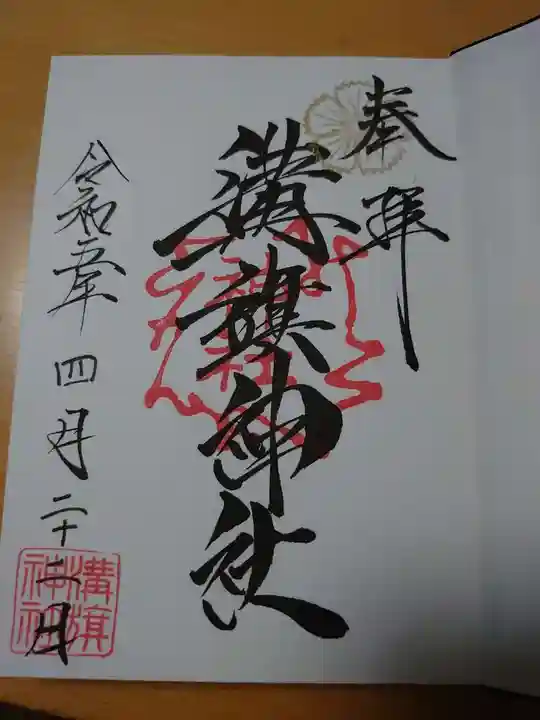 奉拝
溝旗神社
令和五年四月二十二日
溝旗
神社